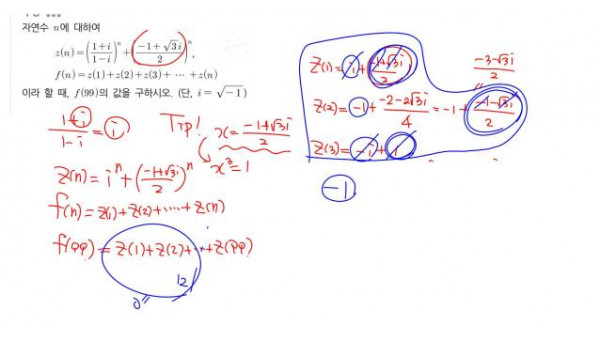 자연수 n에 대하여
z(n) = ((1+i)/(1-i))^n + ((-1+√3i)/2)^n,
f(n) = z(1) + z(2) + z(3) + ⋯ + z(n)
이라 할 때, f(99)의 값을 구하시오. (단, i = √-1)
(1+i)/(1-i) = i
Tip! x = (-1+√3i)/2
x³ = 1
z(n) = i^n + ((-1+√3i)/2)^n
f(n) = z(1) + z(2) + ⋯⋯ + z(n)
f(99) = z(1) + z(2) + ⋯ + z(99)
12
0"
z(1) = i + (-1+√3i)/2
z(2) = -1 + (-2-2√3i)/4 = -1 + (-1-√3i)/2
(-3-√3i)/2
z(3) = -i + 1
-1